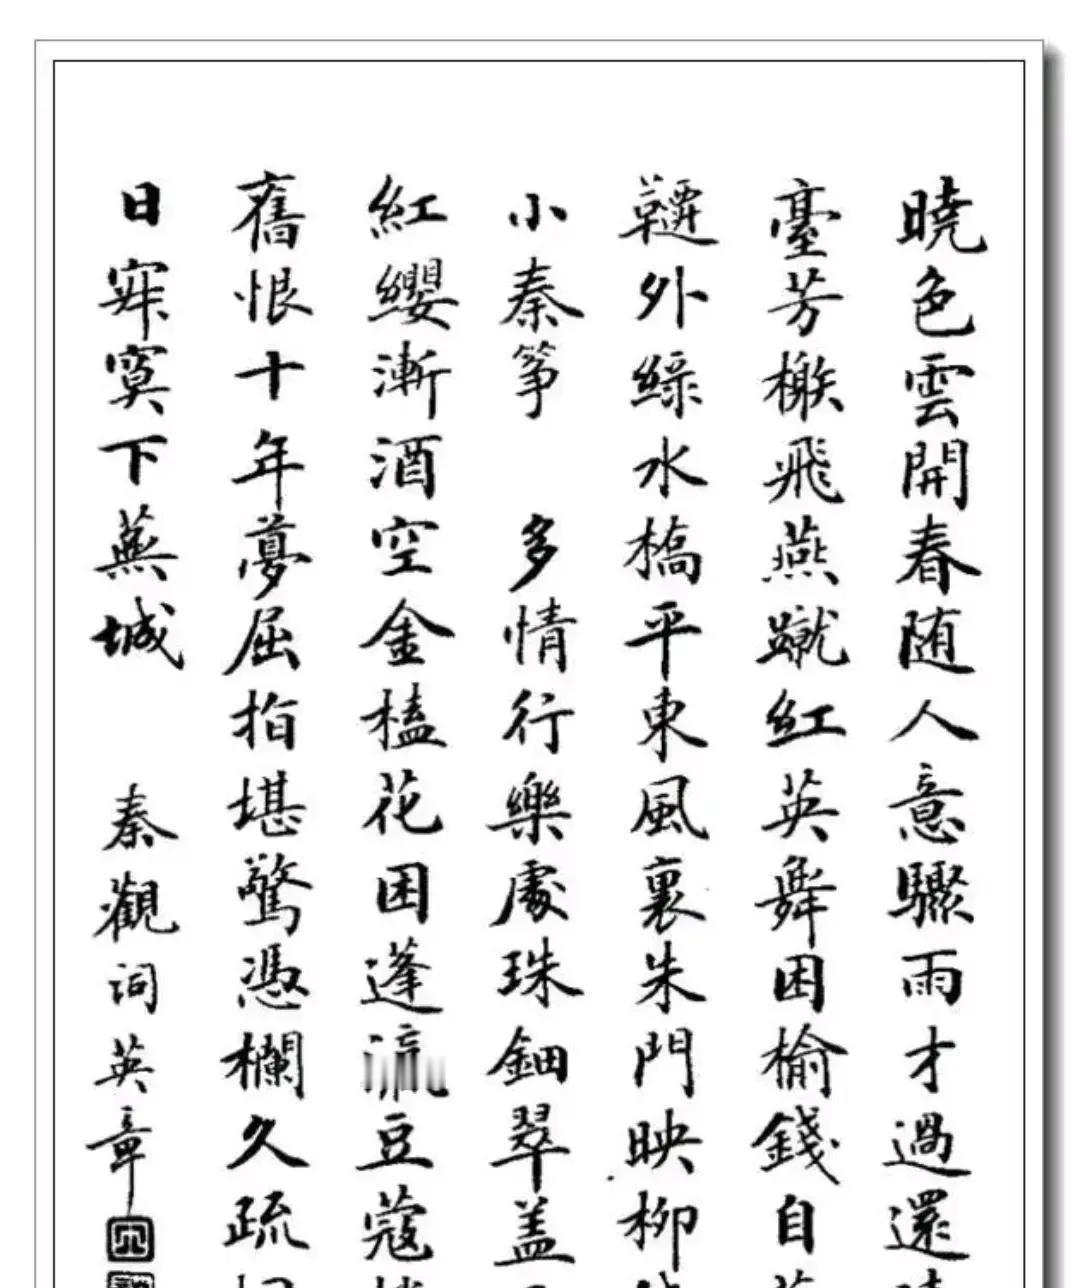 曉色雲開春随人意驟雨才過還
臺芳榭飛燕蹴紅英舞困榆錢自
韆外綠水橋平東風裏朱門映柳
小秦筝 多情行樂處珠鈿翠盖
紅纓漸酒空金榼花困蓬豆蔻
舊恨十年夢屈指堪驚憑欄久疏
日寂寞下蕪城 秦觀词英章